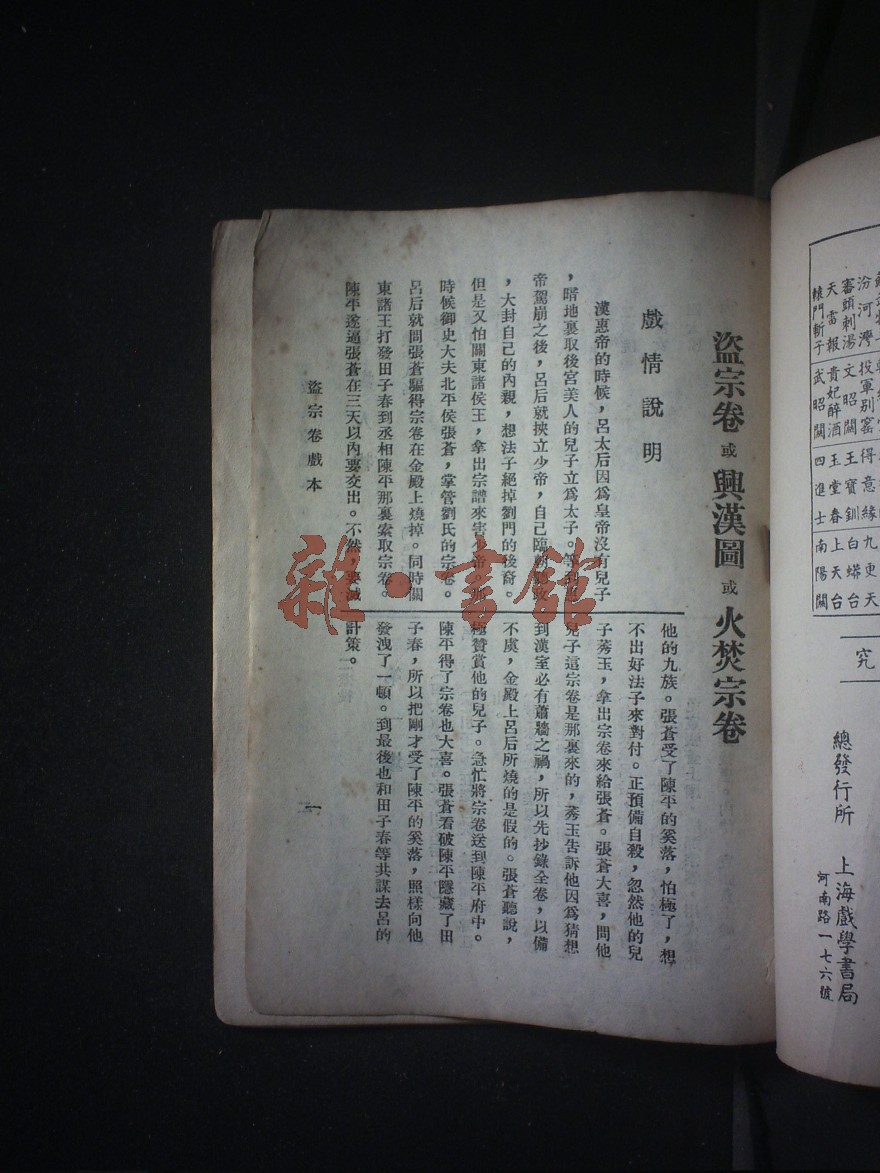 汾河灣 投軍別窰 得意緣 九更天
審頭刺湯 文昭關 王寶釧 白蟒台
天雷報 貴妃醉酒 玉堂春 上天台
轅門斬子 武昭關 四進士 南陽關
究
總發行所 上海戲學書局
河南路一七六號
盜宗卷或興漢圖或火焚宗卷
戲情說明
漢惠帝的時候,呂太后因爲皇帝沒有兒子
,暗地裏取後宮美人的兒子立爲太子。等到惠
帝駕崩之後,呂后就挾立少帝,自己臨朝聽政
,大封自己的內親,想法子絕掉劉門的後裔。
但是又怕關東諸侯王,拿出宗譜來害少帝。那
時候御史大夫北平侯張蒼,掌管劉氏的宗卷。
呂后就問張蒼騙得宗卷在金殿上燒掉。同時關
東諸王打發田子春到丞相陳平那裏索取宗卷。
陳平遂逼張蒼在三天以內要交出。不然,要滅
他的九族。張蒼受了陳平的奚落,怕極了,想
不出好法子來對付。正預備自殺,忽然他的兒
子秀玉,拿出宗卷來給張蒼。張蒼大喜,問他
兒子這宗卷是那裏來的,秀玉告訴他因爲猜想
到漢室必有蕭牆之禍,所以先抄錄全卷,以備
不虞,金殿上呂后所燒的是假的。張蒼聽說,
極贊賞他的兒子。急忙將宗卷送到陳平府中。
陳平得了宗卷也大喜。張蒼看破陳平隱藏了田
子春,所以把剛才受了陳平的奚落,照樣向他
發洩了一頓。到最後也和田子春等共謀去呂的
計策。
盜宗卷戲本
一
雜·書館